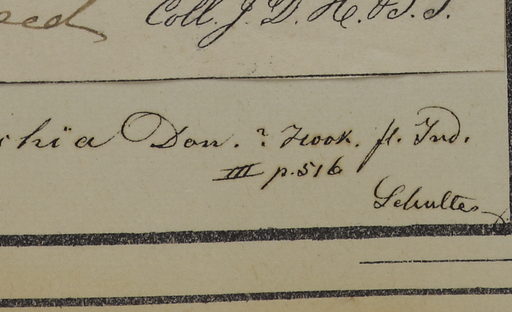 Coll. J. D. H. & T. T.
Don. ? Hook. fl. Ind.
III p. 516
Schultes